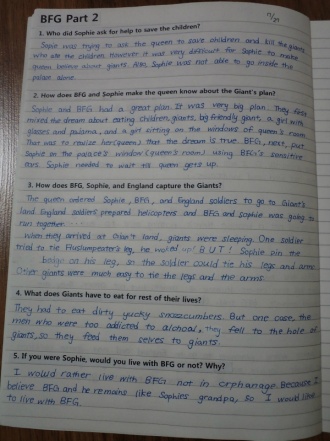 BFG Part 2
1. Who did Sophie ask for help to save the children?
Sophie was trying to ask the queen to save children and kill the giants
who ate the children. However it was very difficult for Sophie to make
queen believe about giants. Also, Sophie was not able to go inside the
palace alone.
2. How does BFG and Sophie make the queen know about the Giant's plan?
Sophie and BFG had a great plan. It was very big plan. They first
mixed the dream about eating children, giants, big friendly giant, a girl with
glasses and pajama, and a girl sitting on the windows of queen's room.
That was to realize her(queen) that the dream is true. BFG, next, put
Sophie on the palace's window (queen's room) using BFG's sensitive
ears. Sophie needed to wait til queen gets up.
3. How does BFG, Sophie, and England capture the Giants?
The queen ordered Sophie, BFG, and England soldiers to go to Giant's
land. England soldiers prepared helicopters and BFG and sophie was going to
run together.
When they arrived at Giant land, giants were sleeping. One soldier
tried to tie Fleshlumpeater's leg, he woked up! B.U.T! Sophie pin the
badge on his leg, so the soldier could tie his legs and arms.
Other giants were much easy to tie the legs and the arms.
4. What does Giants have to eat for rest of their lives?
They had to eat dirty yucky snozzcumbers. But one case, the
men who were too addicted to alcohol, they fell to the hole of
giants, so they feed them selves to giants.
5. If you were Sophie, would you live with BFG or not? Why?
I would rather live with BFG not in orphanage. Because I
believe BFG and he remains like Sophies grandpa, so I would like
to live with BFG.